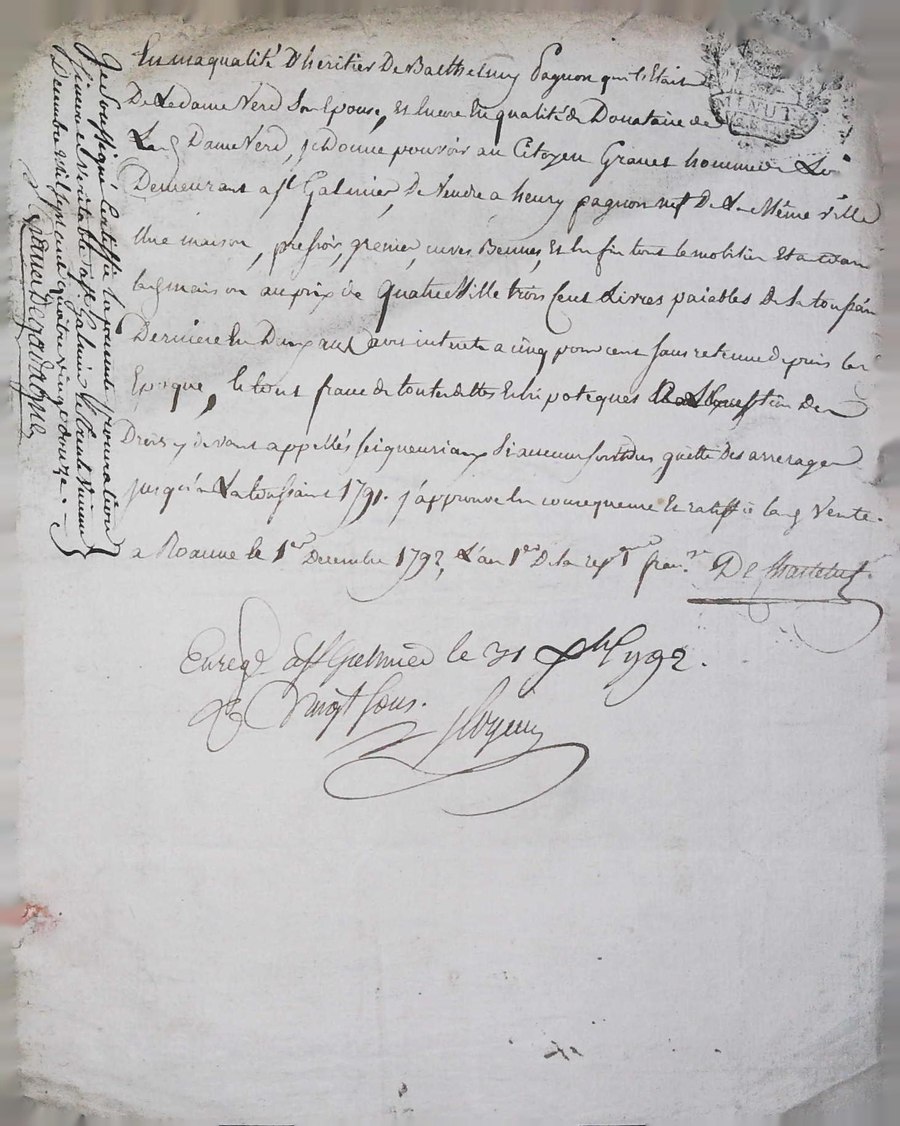 En ma qualité D'héritier De Barthelmy Pagnon qui l'Etait
De Ladame Verd Son Epouse, et Encore En qualité de Donataire de
La d Dame Verd, je Donne pouvoir au Citoyen Granet homme de Loi
Demeurant a st Galmier, De Vendre a henry pagnon nef De La Même Ville
Une maison, pressoir, grenier, cuves Bennes, Et En fin tout le mobilier Etant dans
la d maison au prix de quatre Mille trois Cent Livres paiables De la toussain
Derniere En Deux ans avec interets a cinq pour cent Sans retenue depuis la d
Epoque, le tout franc de toute dettes Et hipoteques a L'Exception Des
Droits cy devant appellés Seigneuriaux Si aucuns sont dus quitte des arrerages
jusqu'a La toussaint 1791. j'approuve En consequence Et ratiffie la d Vente.
a Roanne le 1er Decembre 1792, L'an 1er De la repque franse De Chastelus
Enregé a st Galmier le 31 xbre 1792.
Rç Vingt sous.
Je Soussigné Certiffie la presente procuration
Sincere et Veritable a st Galmier le trente Un
Decembre Mil sept cent quatre vingt douze.